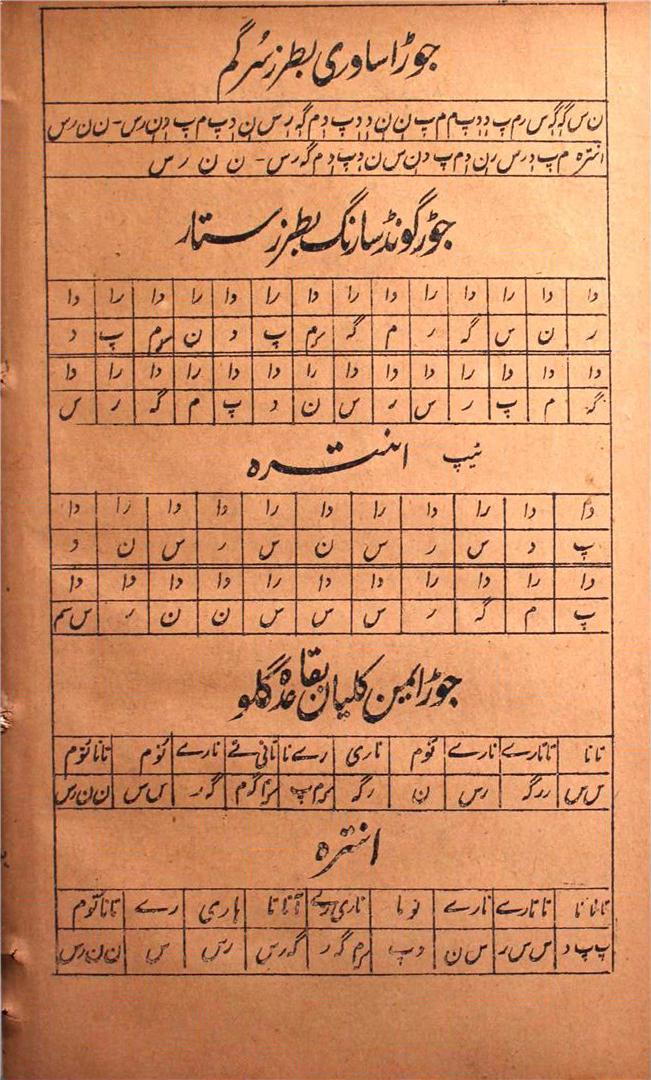 جوڑ اساوری بطرز سرگم
ن س گہ گہ س رم پ د د پ م م پ ن ن د د پ د م گہ ر س ن د پ م پ د ن رس - ن ن رس
انترہ م پ د رس رن د م پ د ن س ن د پ د م گہ رس - ن ن ر س
جوڑ گونڈ سارنگ بطرز ستار
دا دا را دا دا را دا را دا را دا را دا
ر ن س گہ ر م گہ رم پ د ن سرم پ د
دا دا را دا دا دا را دا دا را دا را دا
گہ م پ ر س ر س ن د پ م گہ ر س
ٹیپ انترہ
دا دا را دا را دا را دا دا را دا
پ د س ر س ن س ر س ن د
دا را دا را دا دا را دا دا دا دا
پ م گہ ر س س س ن ن ر س سم
جوڑ ایمن کلیان بقاعدہ گلو
تانا تاتارے نارے توم ناری رے نا تانی نے نارے توم تانا توم
س س ررگہ رس ن رگہ رم پ رم گرم گہ ر س س ن ن رس
انترہ
تانانا تاتارے نارے نو ما ناری رے آناتا ہاری رے تاناتوم
پ پ د س س ر س ن د پ رم گہ ر گہ رس رس س ن ن رس